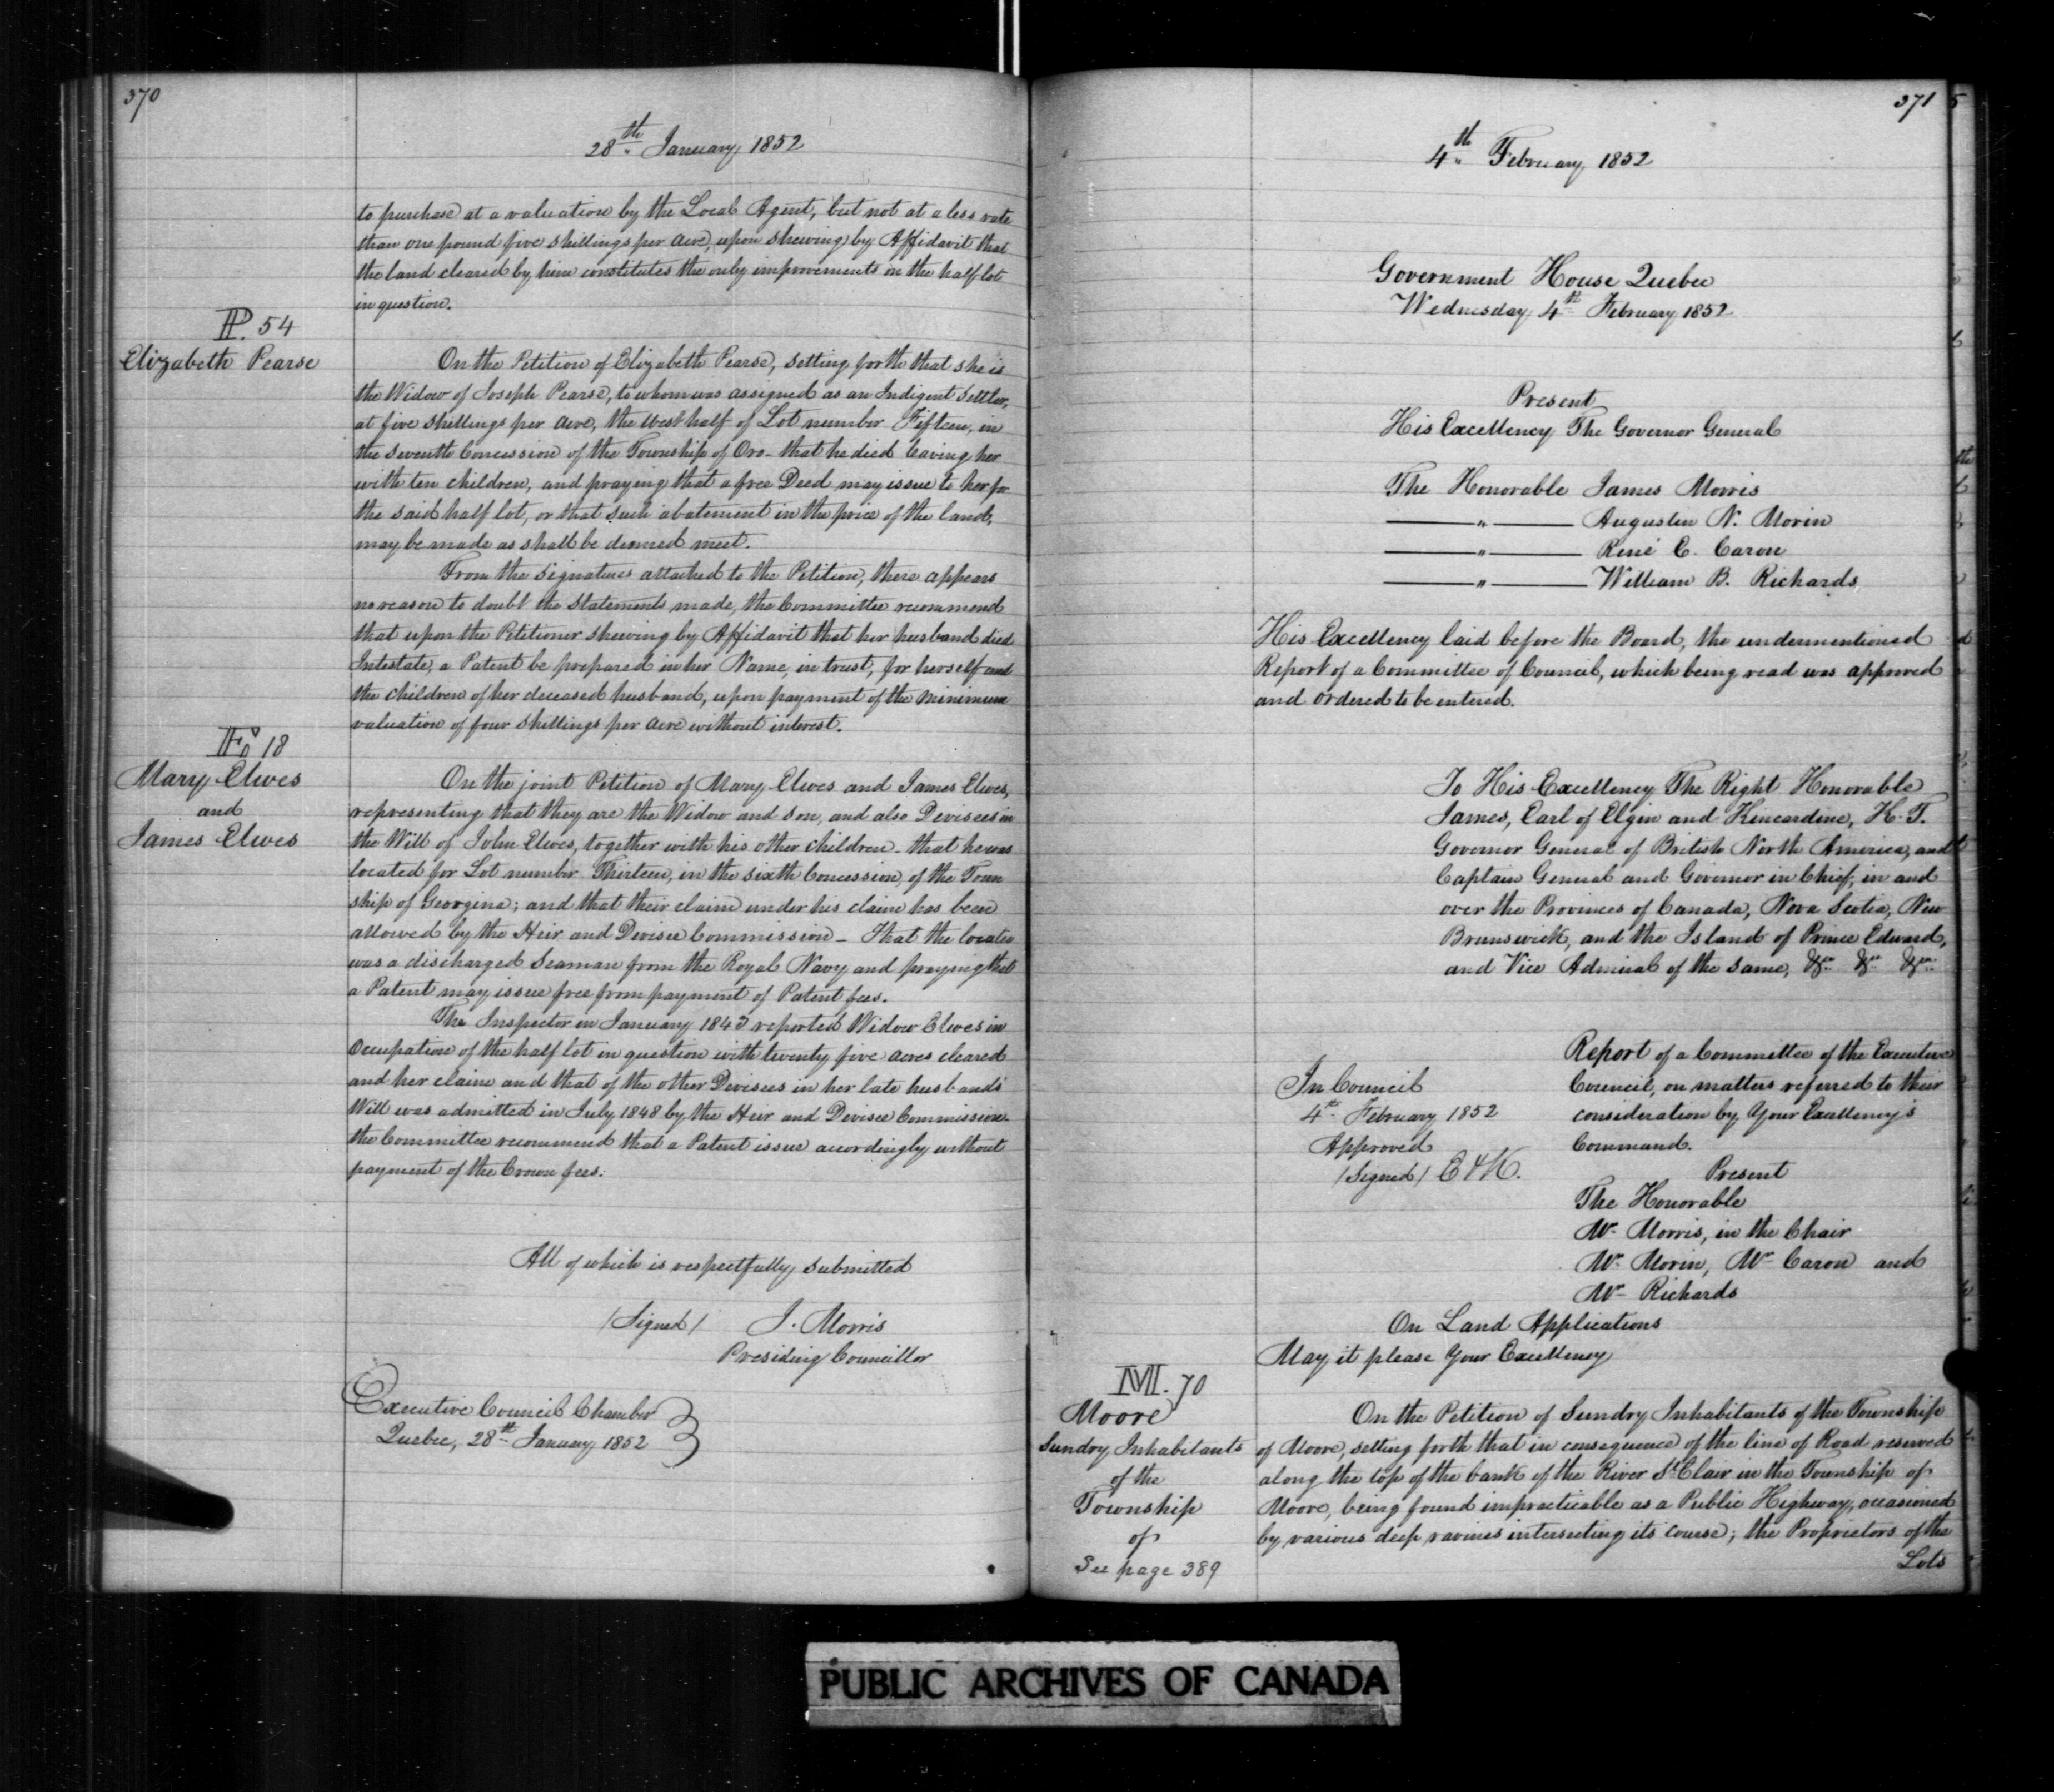 370
28th January 1852
to purchase at a valuation by the Local Agent, but not at a less rate
than one pound five shillings per acre, upon shewing by Affidavit that
the land cleared by him constitutes the only improvements on the half lot
in question.
P. 54
Elizabeth Pearse
On the Petition of Elizabeth Pearse, setting forth that she is
the Widow of Joseph Pearse, to whom was assigned as an Indigent Settler,
at five shillings per acre, the west half of Lot number Fifteen, in
the seventh Concession of the Township of Oro - that he died leaving her
with ten children, and praying that a free Deed may issue to her for
the said half lot, or that such abatement in the price of the land,
may be made as shall be deemed meet.
From the signatures attached to the Petition, there appears
no reason to doubt the statements made, the Committee recommend
that upon the Petitioner shewing by Affidavit that her husband died
Intestate, a Patent be prepared in her Name, in trust, for herself and
the children of her deceased husband, upon payment of the minimum
valuation of four shillings per acre without interest.
18
Mary Elwes
and
James Elwes
On the joint Petition of Mary Elwes and James Elwes,
representing that they are the Widow and son, and also Devisees in
the Will of John Elwes, together with his other children - that he was
located for Lot number Thirteen, in the sixth Concession of the Town
ship of Georgina; and that their claim under his claim has been
allowed by the Heir and Devisee Commission - That the locatee
was a discharged Seaman from the Royal Navy and praying that
a Patent may issue free from payment of Patent fees.
The Inspector in January 1843 reported Widow Elwes in
Occupation of the half lot in question with twenty five acres cleared
and her claim and that of the other Devisees in her late husbands
Will was admitted in July 1848 by the Heir and Devisee Commission.
the Committee recommend that a Patent issue accordingly without
payment of the Crown fees.
All of which is respectfully submitted
/Signed/ J. Morris
Presiding Councillor
Executive Council Chamber
Quebec, 28th January 1852
371
4th February 1852
Government House Quebec
Wednesday 4th February 1852
Present
His Excellency The Governor General
The Honorable James Morris
——"—— Augustin N. Morin
——"—— René E. Caron
——"—— William B. Richards
His Excellency laid before the Board, the undermentioned
Report of a Committee of Council, which being read was approved
and ordered to be entered.
To His Excellency The Right Honorable
James, Earl of Elgin and Kincardine, K.T.
Governor General of British North America, and
Captain General and Governor in Chief, in and
over the Provinces of Canada, Nova Scotia, New
Brunswick, and the Island of Prince Edward,
and Vice Admiral of the same, &ca &ca &ca
In Council
4th February 1852
Approved
/Signed/ E & K.
Report of a Committee of the Executive
Council, on matters referred to their
consideration by Your Excellency's
Command.
Present
The Honorable
Mr Morris, in the Chair
Mr Morin, Mr Caron and
Mr Richards
On Land Applications
May it please Your Excellency
M. 70
Moore
Sundry Inhabitants
of the
Township
of
See page 389
On the Petition of Sundry Inhabitants of the Township
of Moore, setting forth that in consequence of the line of Road reserved
along the top of the bank of the River St Clair in the Township of
Moore, being found impracticable as a Public Highway, occasioned
by various deep ravines intersecting its course; the Proprietors of the
Lots
PUBLIC ARCHIVES OF CANADA